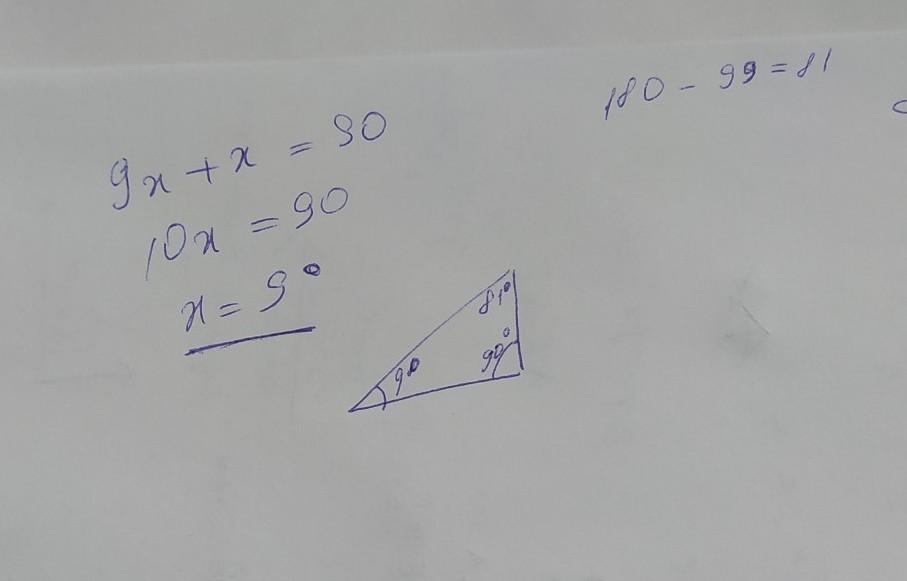 180 - 99 = 81
9x + x = 90
10x = 90
x = 9°
81°
90°
9°